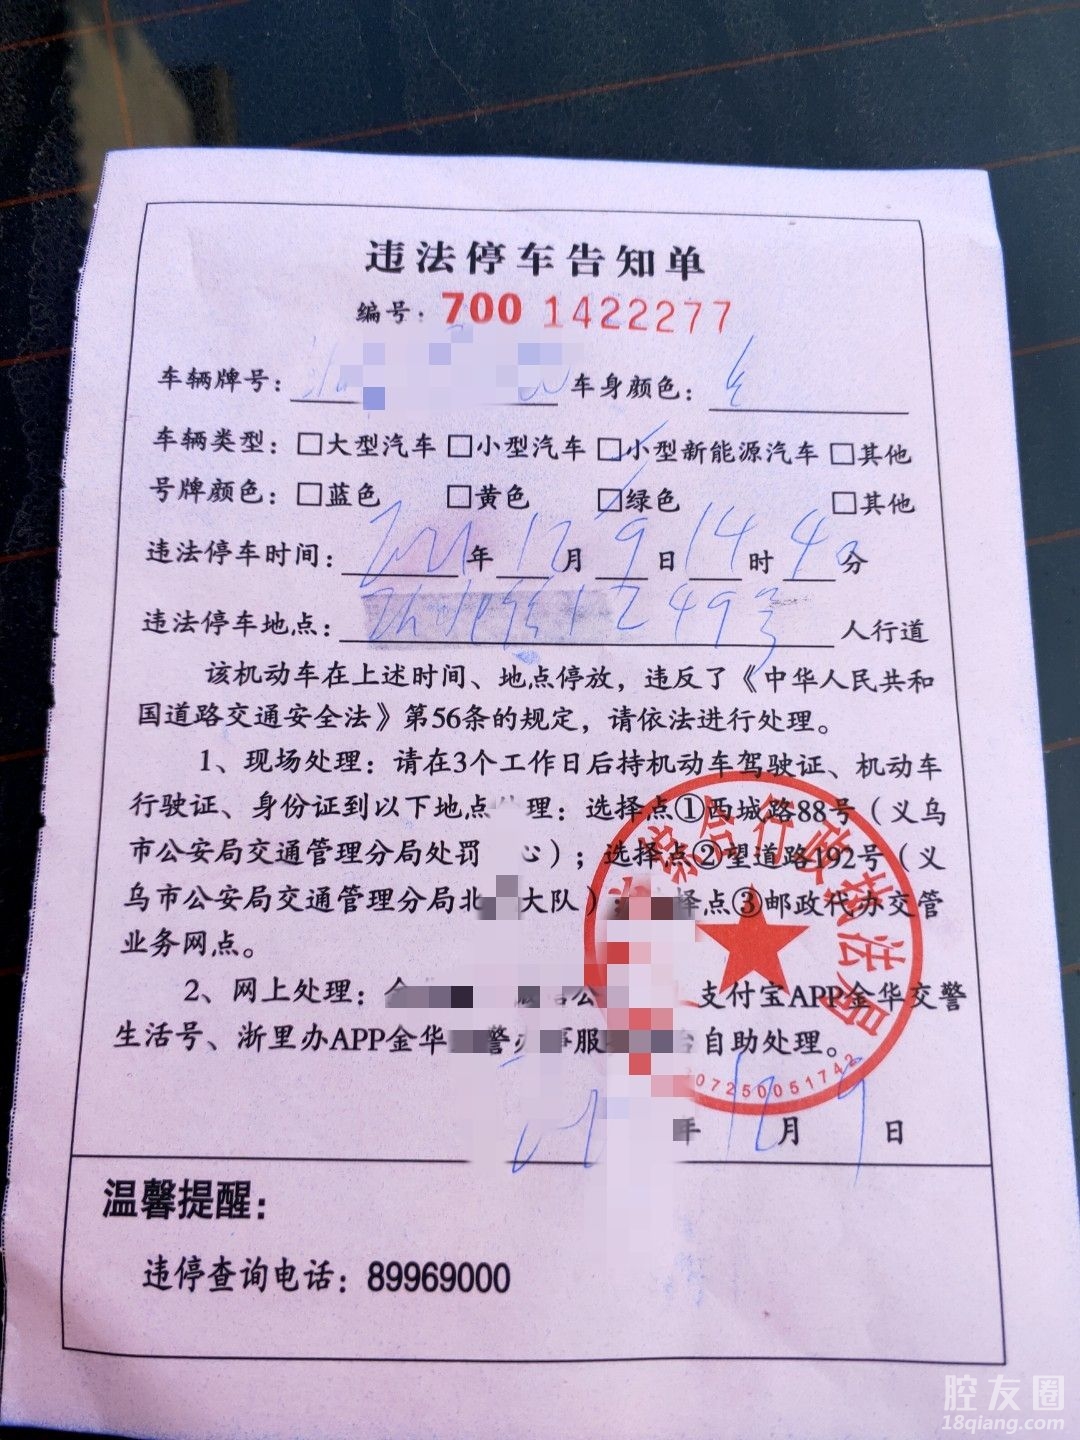 违法停车告知单
编号：700 1422277
车辆牌号： 车身颜色：
车辆类型：□大型汽车 □小型汽车 □小型新能源汽车 □其他
号牌颜色：□蓝色 □黄色 □绿色 □其他
违法停车时间：2021年12月9日14时40分
违法停车地点：249号 人行道
该机动车在上述时间、地点停放，违反了《中华人民共和
国道路交通安全法》第56条的规定，请依法进行处理。
1、现场处理：请在3个工作日后持机动车驾驶证、机动车
行驶证、身份证到以下地点处理：选择点①西城路88号（义乌
市公安局交通管理分局处罚 心）；选择点②望道路192号（义
乌市公安局交通管理分局北 大队）； 择点③邮政代办交管
业务网点。
2、网上处理： 支付宝APP金华交警
生活号、浙里办APP金华 警 事服 自助处理。
综合行政执法局
07250051742
21年12月9日
温馨提醒：
违停查询电话：89969000
腔友圈
18qiang.com